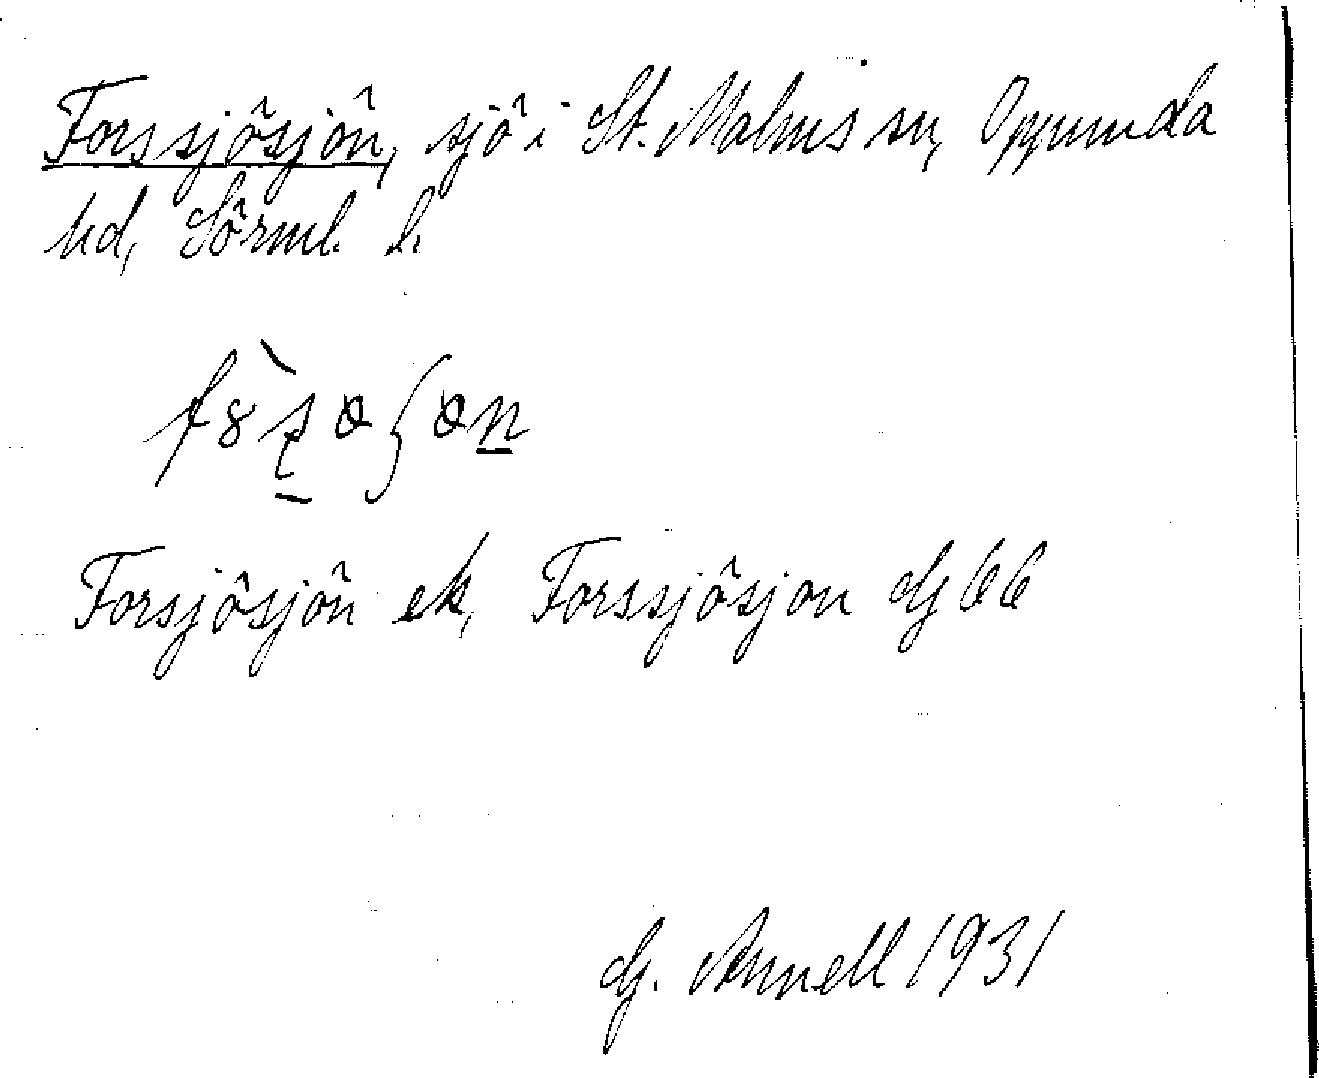 Forssjösjön, sjö i St. Malms sn, Oppunda
hd, Sörml. l.
Forsjösjön ek, Forssjösjon G 66
G. Annell 1931